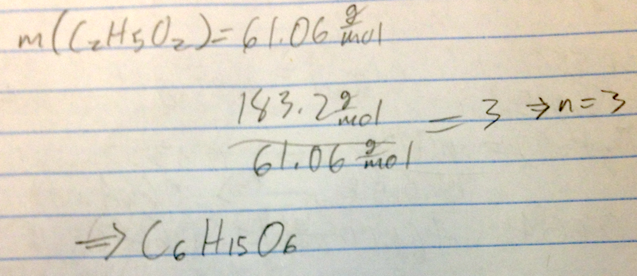 m(C₂H₅O₂) = 61.06 g/mol
183.2 g/mol / 61.06 g/mol = 3 ⇒ n = 3
⇒ C₆H₁₅O₆